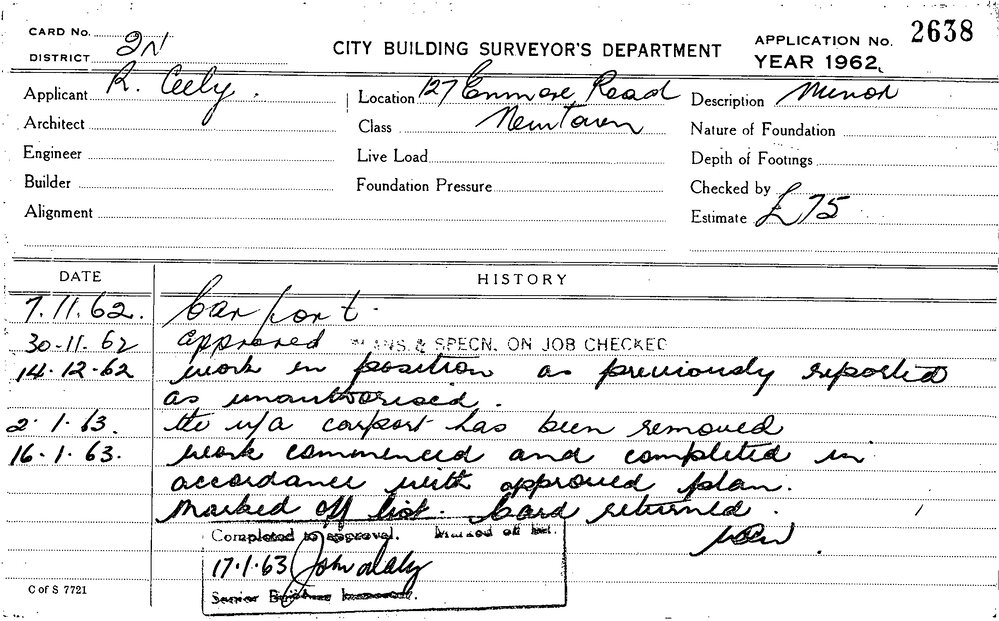 CARD No.
DISTRICT 2N
CITY BUILDING SURVEYOR'S DEPARTMENT
APPLICATION No. 2638
YEAR 1962
Applicant R. Ceely.
Location 127 Enmore Road
Description Minor
Architect
Class Newtown
Nature of Foundation
Engineer
Live Load
Depth of Footings
Builder
Foundation Pressure
Checked by
Alignment
Estimate £75
DATE HISTORY
7.11.62. Carport.
30-11.62 approved PLANS & SPECN. ON JOB CHECKED
14.12-62 work in position as previously reported
as unauthorised.
2.1.63. the u/a carport has been removed
16.1.63. work commenced and completed in
accordance with approved plan.
Marked off list. Card returned.
Completed to approval. Marked off list.
17.1.63 John Daly
Senior Building
C of S 7721